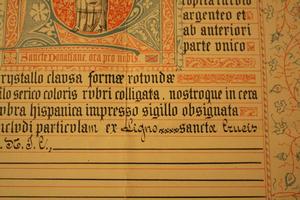 Sancte Donatiane ora pro nobis
argenteo et
ab anteriori
parte unico
crystallo clausa formæ rotundæ
serico coloris rubri colligata, nostroque in cera
rubra hispanica impresso sigillo obsignata
includi particulam ex Ligno sanctæ Crucis